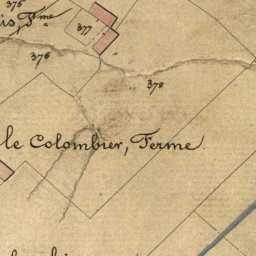 376
is, Fme
377
376
378
le Colombier, Ferme